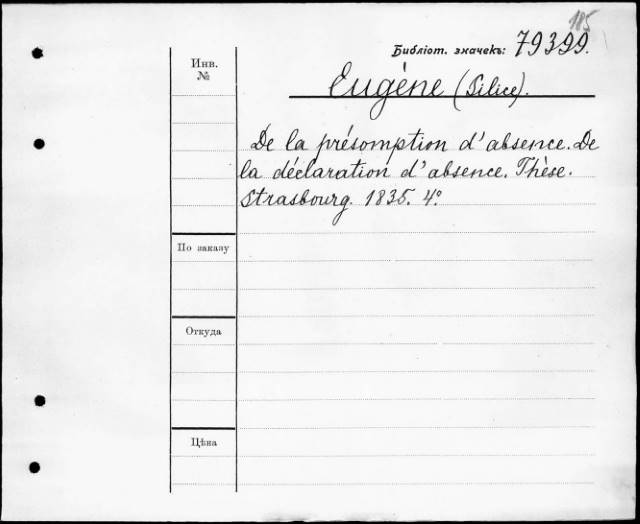 185
Библіот. значекъ: 79399.
Инв.
№
Eugène (Pilice).
De la présomption d'absence. De
la déclaration d'absence. Thèse.
Strasbourg. 1835. 4º
По заказу
Откуда
Цѣна